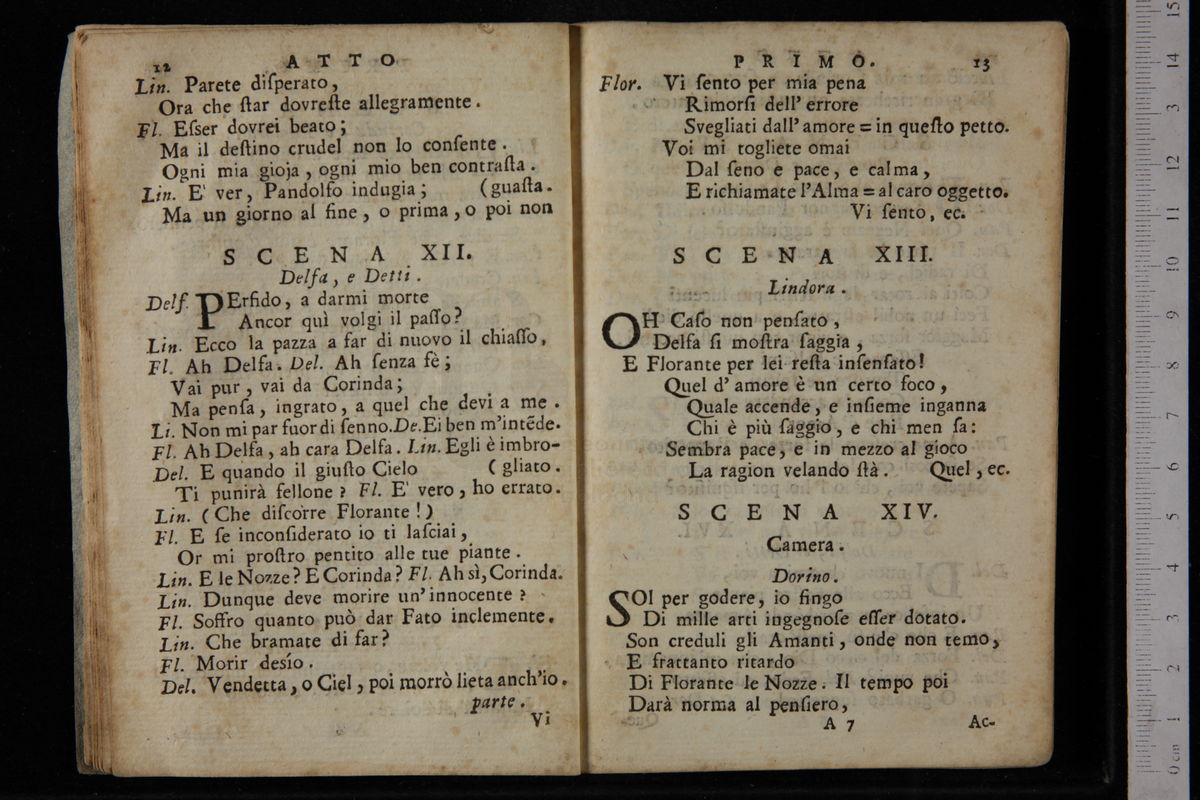 12 ATTO
Lin. Parete diſperato,
Ora che ſtar dovreſte allegramente.
Fl. Eſser dovrei beato;
Ma il deſtino crudel non lo conſente.
Ogni mia gioja, ogni mio ben contraſta.
Lin. E' ver, Pandolfo indugia; (guaſta.
Ma un giorno al fine, o prima, o poi non
SCENA XII.
Delfa, e Detti.
Delf. PErfido, a darmi morte
Ancor quì volgi il paſſo?
Lin. Ecco la pazza a far di nuovo il chiaſſo,
Fl. Ah Delfa. Del. Ah ſenza fè;
Vai pur, vai da Corinda;
Ma penſa, ingrato, a quel che devi a me.
Li. Non mi par fuor di ſenno. De. Ei ben m'intẽde.
Fl. Ah Delfa, ah cara Delfa. Lin. Egli è imbro-
Del. E quando il giuſto Cielo (gliato.
Ti punirà fellone? Fl. E' vero, ho errato.
Lin. (Che diſcorre Florante!)
Fl. E ſe inconſiderato io ti laſciai,
Or mi proſtro pentito alle tue piante.
Lin. E le Nozze? E Corinda? Fl. Ah sì, Corinda.
Lin. Dunque deve morire un' innocente?
Fl. Soffro quanto può dar Fato inclemente.
Lin. Che bramate di far?
Fl. Morir desío.
Del. Vendetta, o Ciel, poi morrò lieta anch'io.
parte.
Vi
PRIMO. 13
Flor. Vi ſento per mia pena
Rimorſi dell' errore
Svegliati dall' amore = in queſto petto.
Voi mi togliete omai
Dal ſeno e pace, e calma,
E richiamate l'Alma = al caro oggetto.
Vi ſento, ec.
SCENA XIII.
Lindora.
OH Caſo non penſato,
Delfa ſi moſtra ſaggia,
E Florante per lei reſta inſenſato!
Quel d' amore è un certo foco,
Quale accende, e inſieme inganna
Chi è più ſaggio, e chi men ſa:
Sembra pace, e in mezzo al gioco
La ragion velando ſtà. Quel, ec.
SCENA XIV.
Camera.
Dorino.
SOl per godere, io fingo
Di mille arti ingegnoſe eſſer dotato.
Son creduli gli Amanti, onde non temo,
E frattanto ritardo
Di Florante le Nozze. Il tempo poi
Darà norma al penſiero,
A 7 Ac-